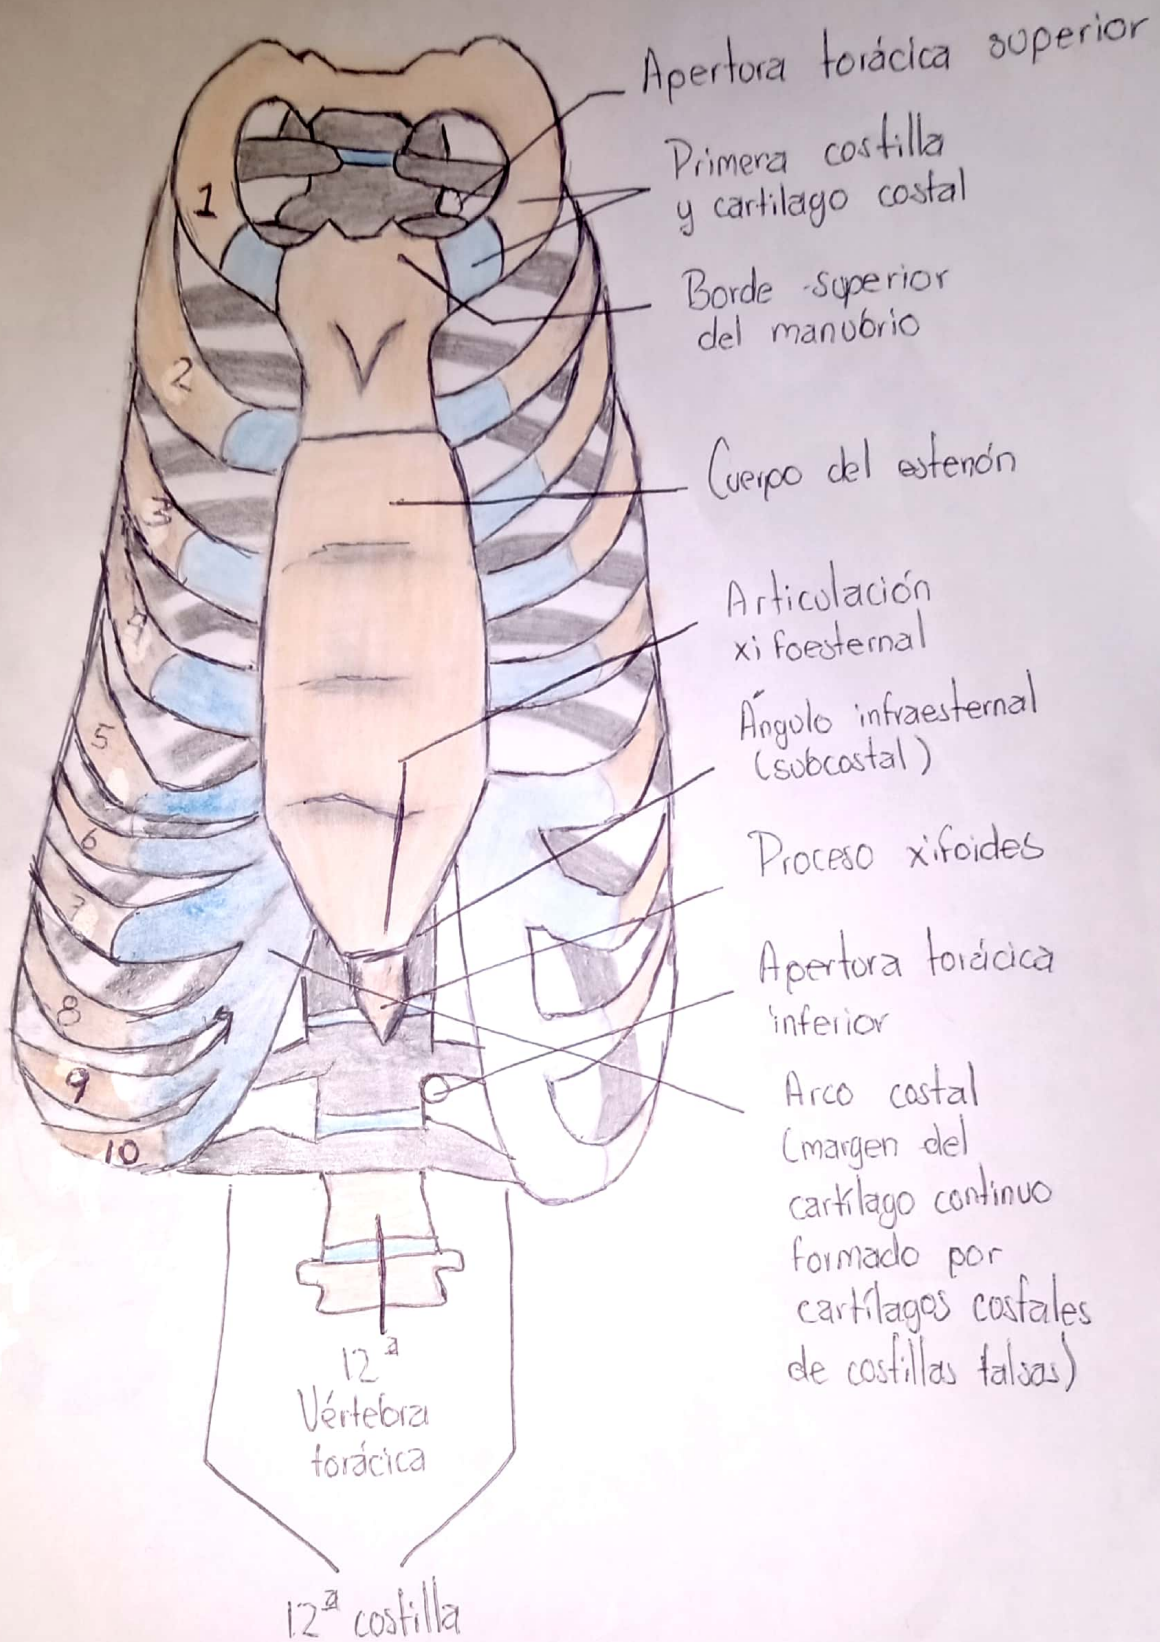 Apertora torácica superior
Primera costilla
y cartilago costal
Borde superior
del manubrio
Cuerpo del estenón
Articulación
xifoesternal
Ángulo infraesternal
(subcostal)
Proceso xifoides
Apertora torácica
inferior
Arco costal
(margen del
cartílago continuo
formado por
cartílagos costales
de costillas falsas)
1
2
3
4
5
6
7
8
9
10
12ª
Vértebra
torácica
12ª costilla